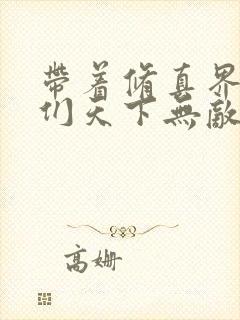 帶着脩真界
们天下無敵
高姗